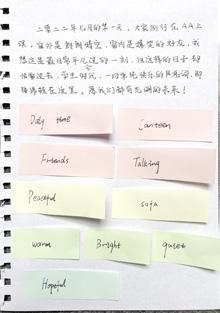 二零二二年九月的某一天，大家例行在AA上
课，窗外是朗朗晴空，窗内是嬉笑的好友，我
想这是最日常平凡过的一刻，但这样的日子却
学生时代，一切单纯快乐的
在这里，愿我们都有光明的未来！
Daily time
canteen
Friends
Talking
Peaceful
sofa
warm
Bright
quiet
Hopeful